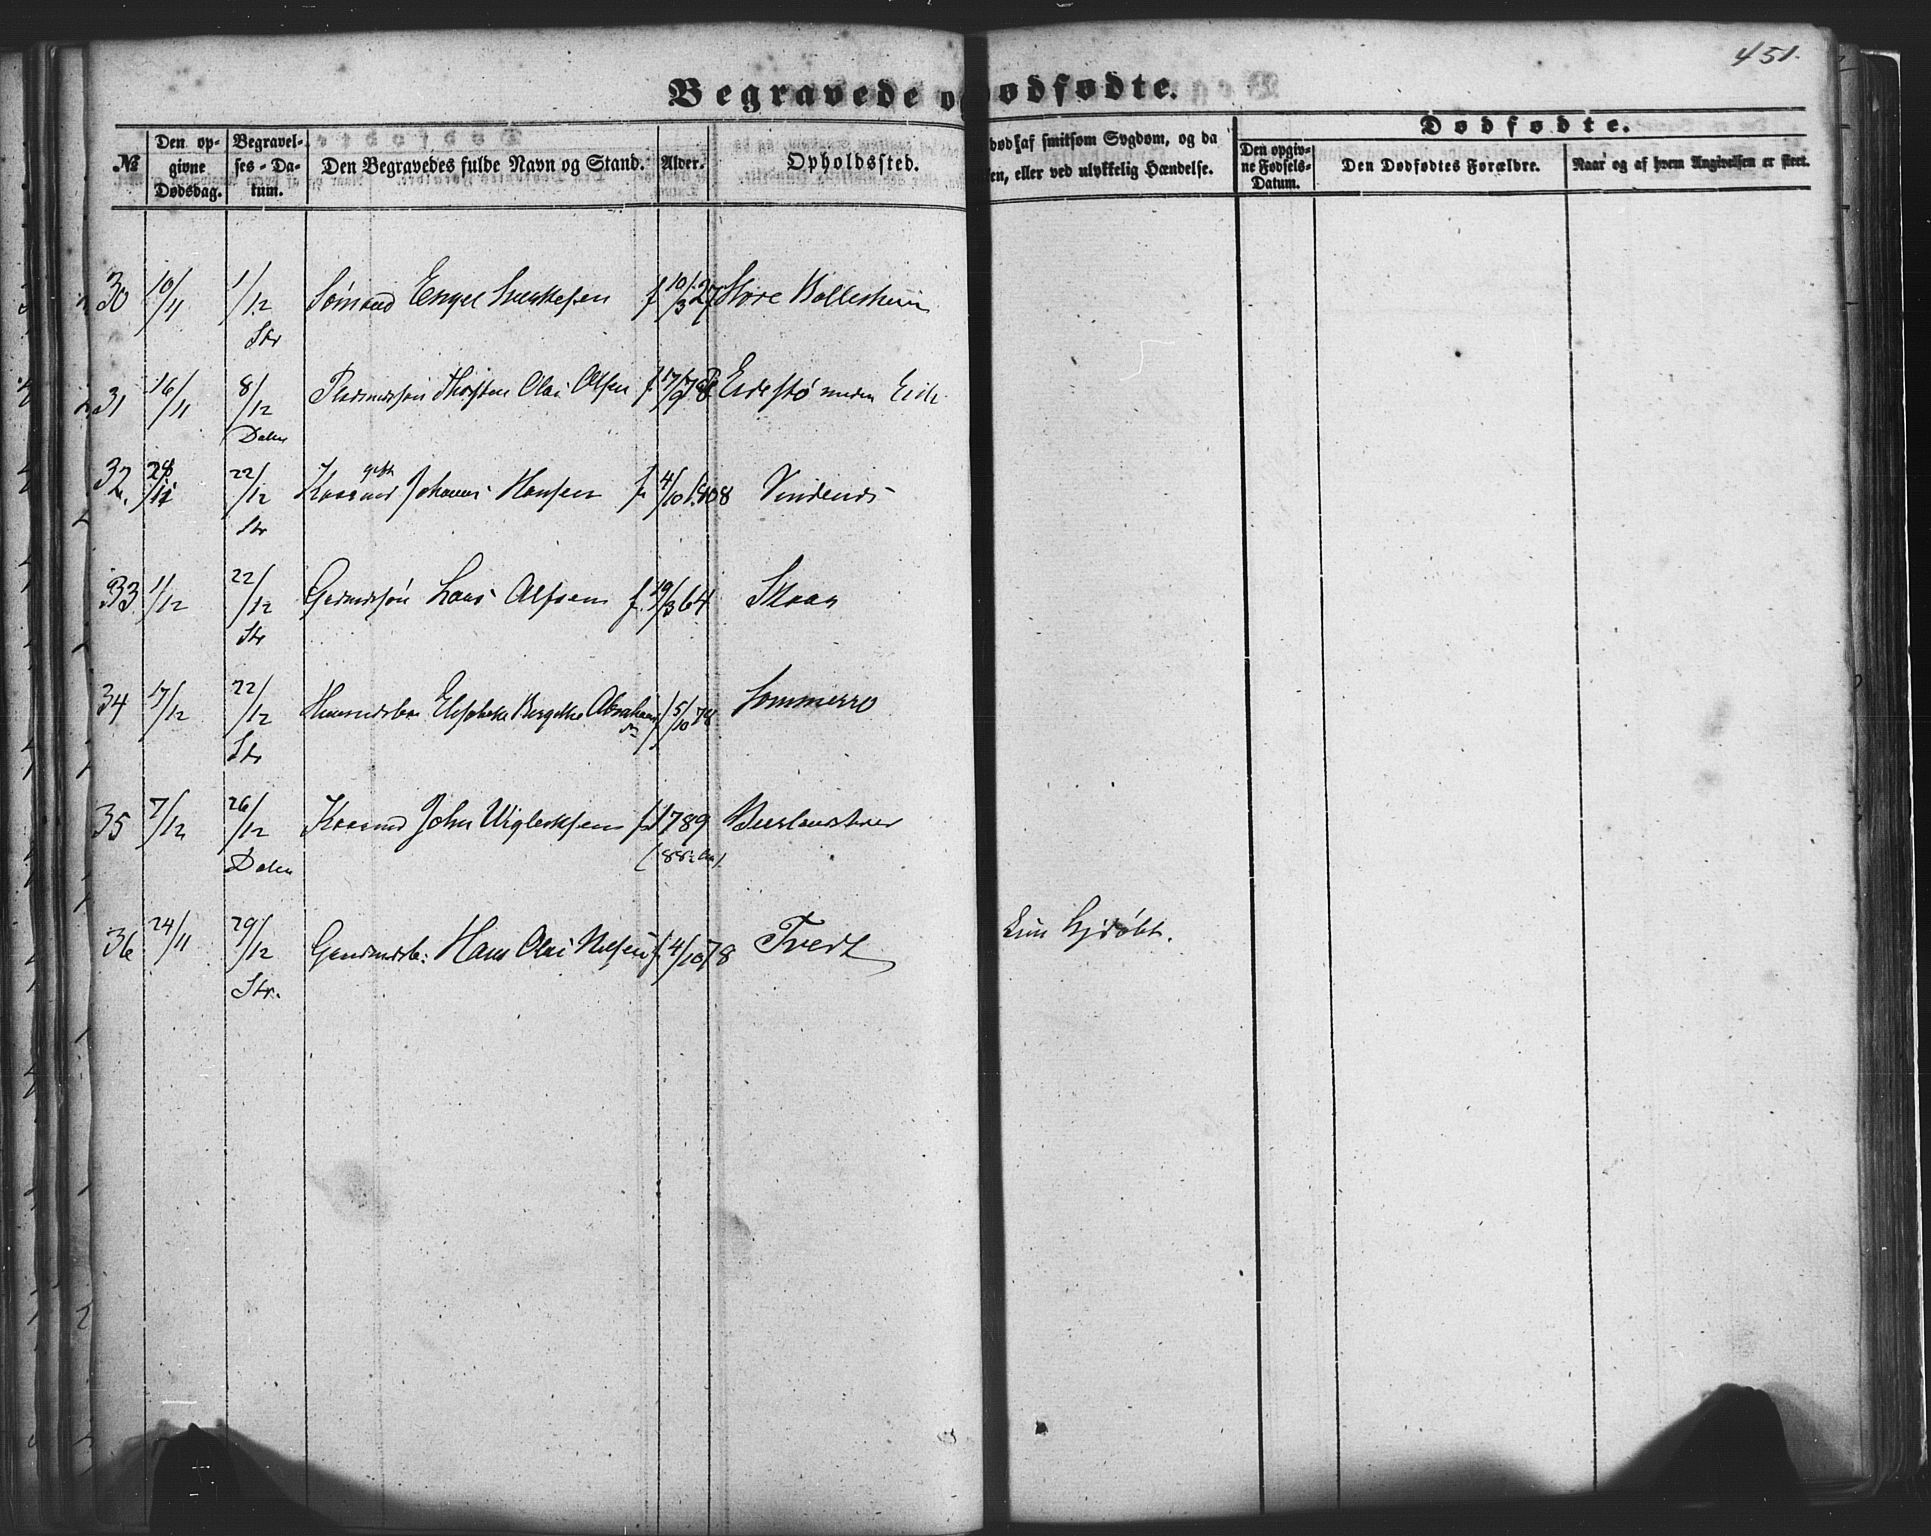 451.
Begravede o
ødfødte.
Dødfødte.
№
Den opgivne Dødsdag.
Begravelses-Datum.
Den Begravedes fulde Navn og Stand.
Alder.
Opholdssted.
død af smitsom Sygdom, og da
en, eller ved ulykkelig Hændelse.
Den opgivne Fødsels-Datum.
Den Dødfødtes Forældre.
Naar og af hvem Angivelsen er skeet.
30 10/11 1/12 Engel f 10/3 27 Store
Str
31 16/11 8/12 Thorsten Olai Olsen f 17/9 78 Eide
Dalen
32 28/11 22/12 Kaarmd Johannes Hansen f. 4/10 1808 Vindenes
gift
Str
33 1/12 22/12 Gaardmdssøn Lars Olsen f. 19/3 64 Skaar
Str
34 17/12 22/12 Elisabeth Bergithe Abrahams f 5/10 78 Sommerro
Str
35 7/12 26/12 Kaarmd John Viglecksen f. 1789
Dalen (88 Aar).
36 24/11 29/12 Hans Olai Nilsen f. 4/10 78 Tvedt
kun hjdøbt.
Str.